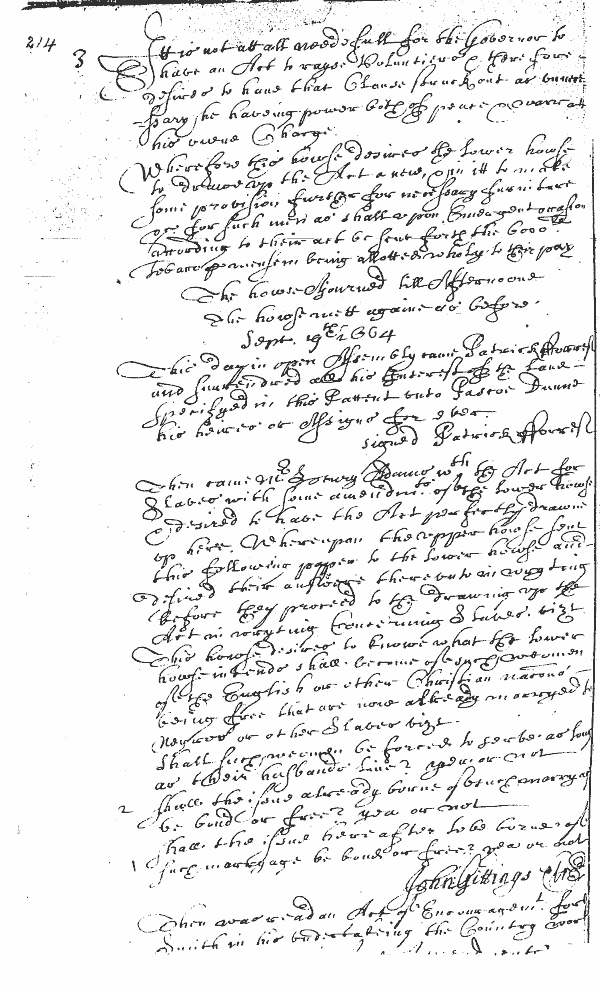 214
3 Itt is not att all needsfull for the Governor to
have an Act to rayse Voluntiers & therefore
desires to have that Clause struck out as unneces
sary he haveing power both of peace & warr att
his owne Charge
Wherefore this howse desires the Lower howse
to draw up the Act a new, & in itt to make
some provision further for necessary furniture
for such men as shall upon Emergent ocasion
according to their act be sent forth the 600
Tobacco mensem being allotted wholy to their pay
The howse Adjourned till Afternoone
The howse mett againe as before.
Sept. 19th 1664
This day in open Assembly came Patrick fforrest
and surrendred all his Interest of the Land
specifyed in this Pattent unto Pascoe Dunne
his heires or Assigns for ever
signed Patrick fforrest
Then came Mr Henry Adams wth the Act for
Slaves with some amendmts of the lower howse
& desired to have the Act perfectly drawne
up here. Whereupon the upper howse sent
this following paper to the lower howse and
desired their answere thereunto in wryting
before they proceed to the drawing up the
Act in wryting Concerning Slaves. vizt
This howse desires to knowe what the lower
howse intends shall become of such weomen
of the English or other Christian nacons
being free that are now allready marryed to
Negros or other Slaves vizt
Shall such weomen be forced to serve as long
as their husbands live? yea or not
2 Shall the issue already borne of such marryag
be bond or free? yea or not
1 Shall the issue hereafter to be borne of
such marryage be bond or free? yea or not
John Gittings Clre
Then was read an Act of Encouragemt for
Smith in his undertakeing the Country